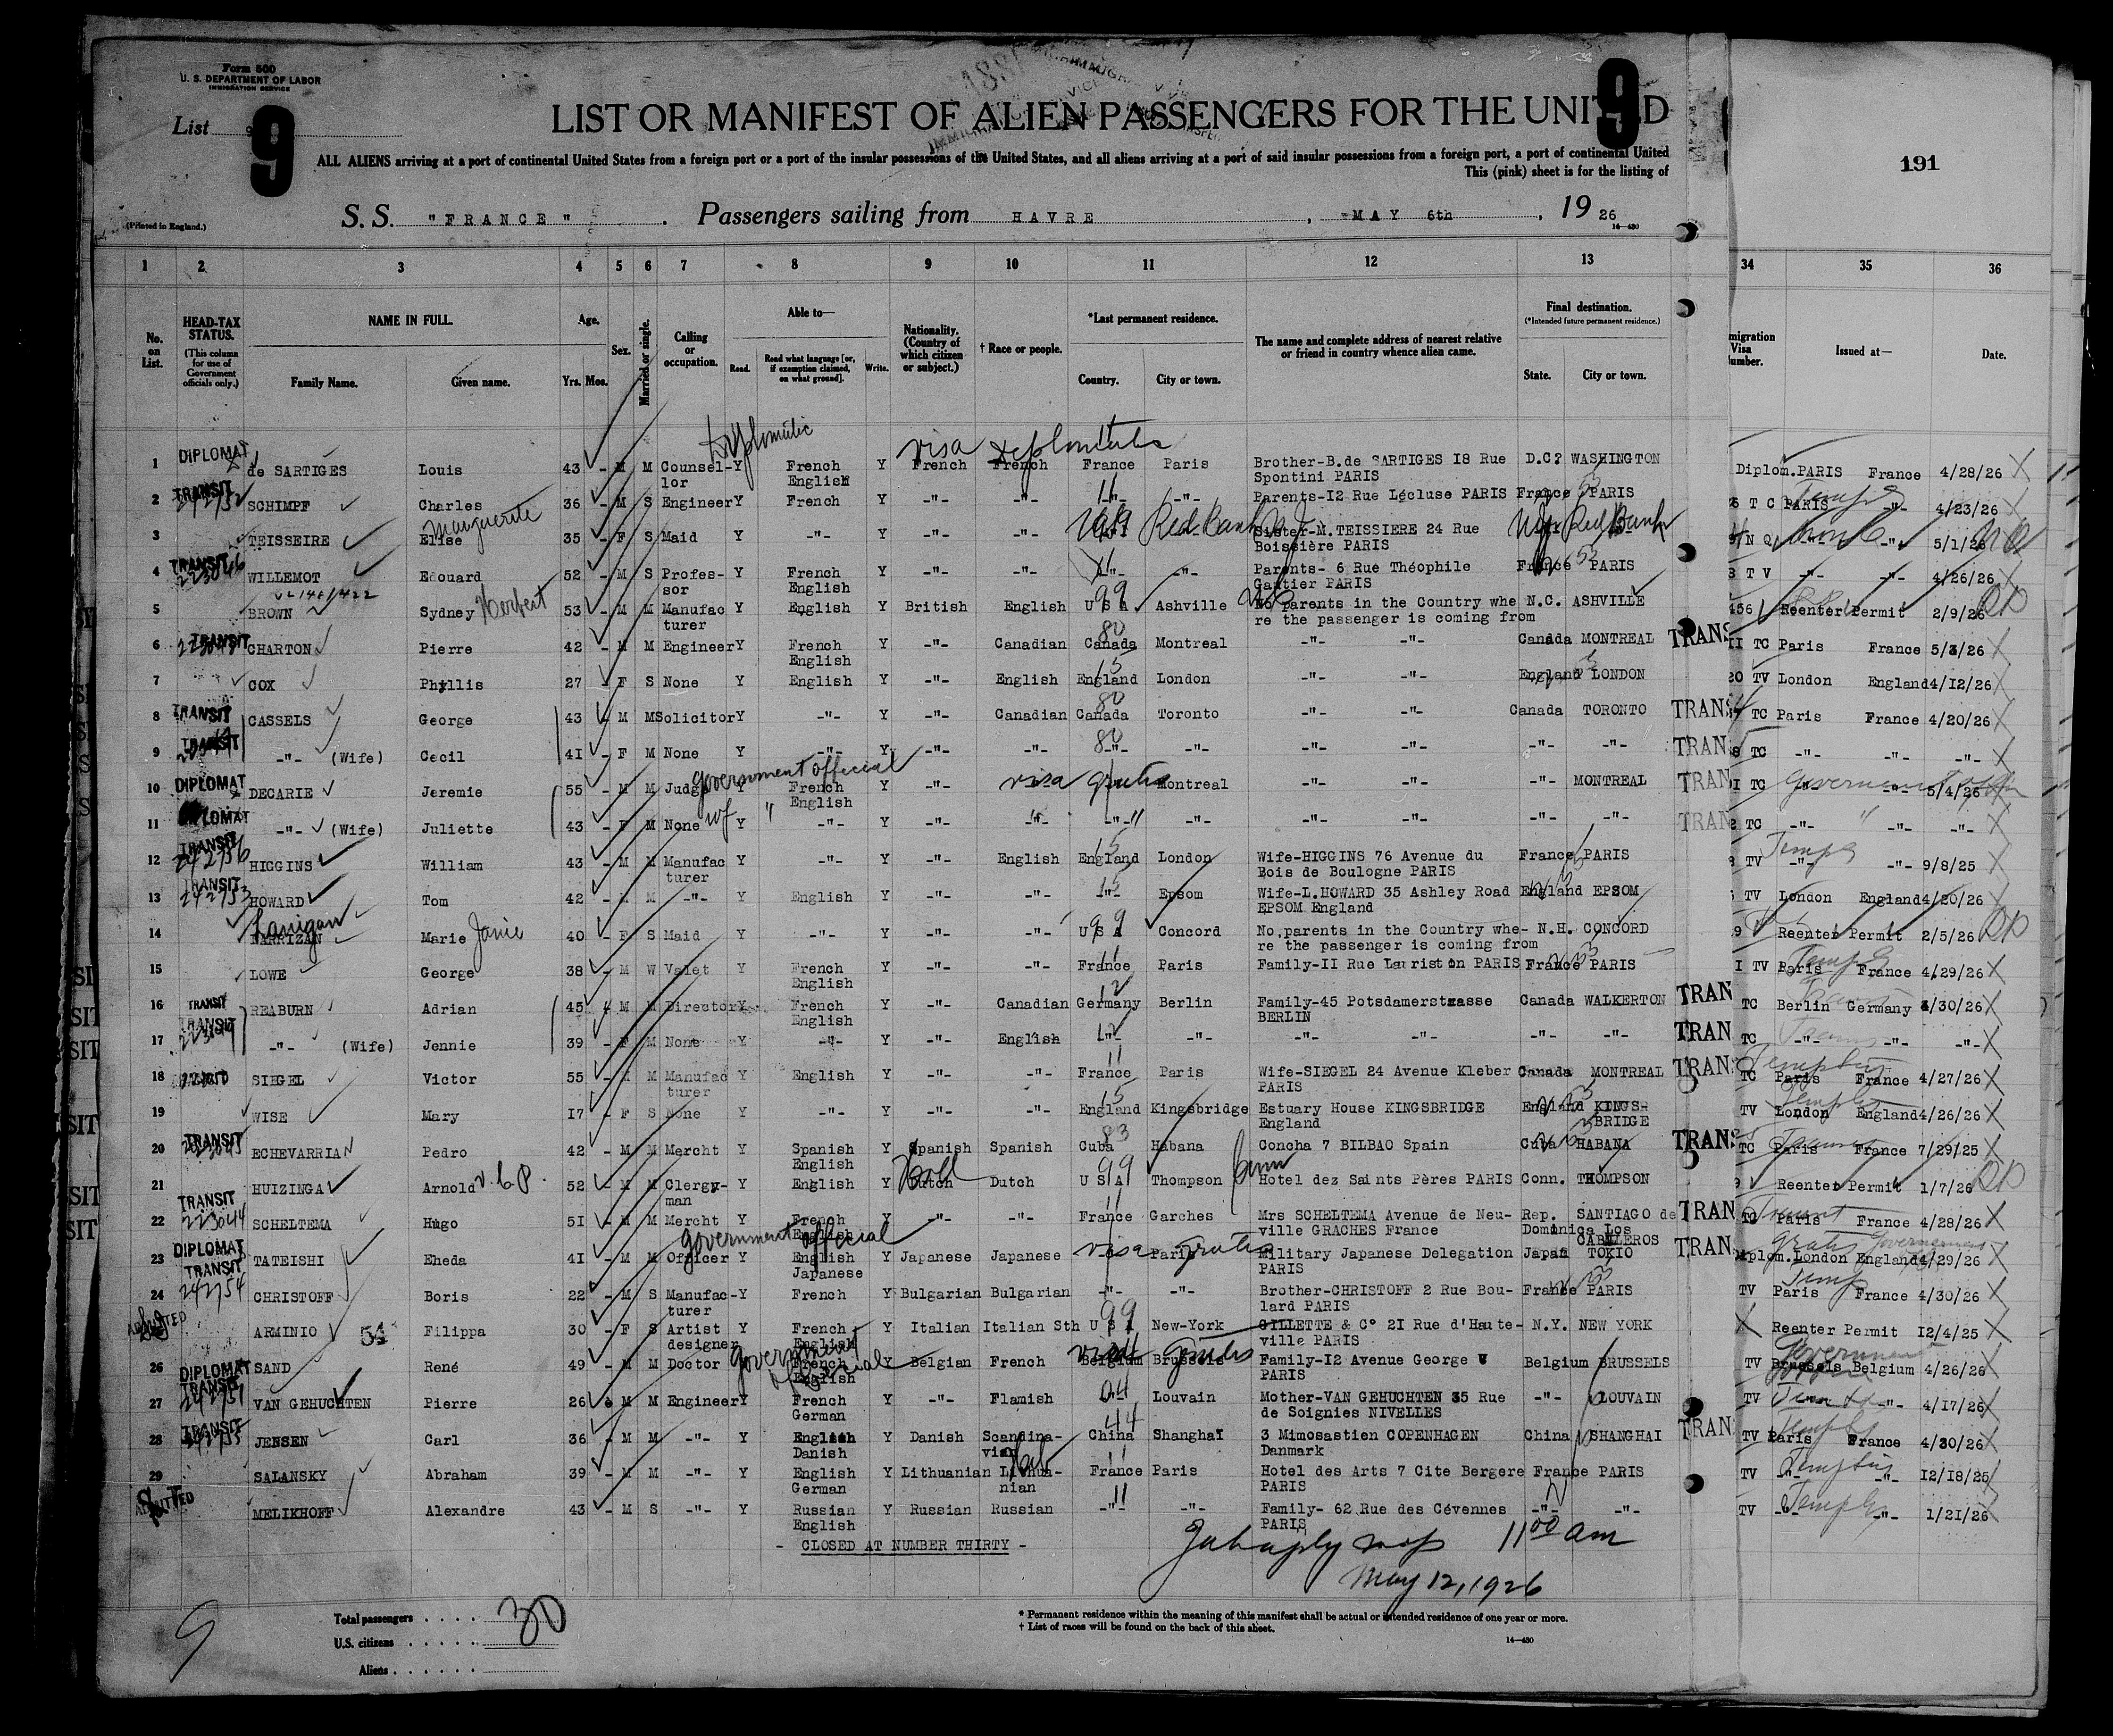 Form 500
U. S. DEPARTMENT OF LABOR
IMMIGRATION SERVICE
List 9
9
9
LIST OR MANIFEST OF ALIEN PASSENGERS FOR THE UNITED
191
ALL ALIENS arriving at a port of continental United States from a foreign port or a port of the insular possessions of the United States, and all aliens arriving at a port of said insular possessions from a foreign port, a port of continental United
This (pink) sheet is for the listing of
(Printed in England.)
S. S. "FRANCE" . Passengers sailing from HAVRE , MAY 6th , 19 26
14—430
1 2 3 4 5 6 7 8 9 10 11 12 13 34 35 36
No. on List.
HEAD-TAX STATUS.
(This column for use of Government officials only.)
NAME IN FULL.
Family Name. Given name.
Age.
Yrs. Mos.
Sex.
Married or single.
Calling or occupation.
Able to—
Read. Read what language [or, if exemption claimed, on what ground]. Write.
Nationality. (Country of which citizen or subject.)
† Race or people.
*Last permanent residence.
Country. City or town.
The name and complete address of nearest relative or friend in country whence alien came.
Final destination.
(*Intended future permanent residence.)
State. City or town.
migration Visa umber.
Issued at—
Date.
Diplomatic visa Diplomatic
1 DIPLOMAT de SARTIGES Louis 43 - M M Counsellor Y French English Y French French France Paris Brother-B.de SARTIGES I8 Rue Spontini PARIS D.C? WASHINGTON Diplom.PARIS France 4/28/26
2 TRANSIT SCHIMPF Charles 36 - M S Engineer Y French Y -"- -"- -"- -"- Parents-I2 Rue Lécluse PARIS France PARIS T C PARIS -"- 4/23/26
3 TEISSEIRE Elise Marguerite 35 - F S Maid Y -"- Y -"- -"- USA Red Bank N J Sister-M.TEISSIERE 24 Rue Boissière PARIS NJ Red Bank N Q -"- 5/1/26
4 TRANSIT 223046 WILLEMOT Edouard 52 - M S Professor Y French English Y -"- -"- -"- -"- Parents- 6 Rue Théophile Gautier PARIS France PARIS T V -"- -"- 4/26/26
5 BROWN Sydney Herbert 53 - M M Manufacturer Y English Y British English U S A Ashville No parents in the Country where the passenger is coming from N.C. ASHVILLE 456 Reenter Permit 2/9/26
6 TRANSIT CHARTON Pierre 42 - M M Engineer Y French English Y -"- Canadian Canada Montreal -"- -"- Canada MONTREAL TRANS TC Paris France 5/3/26
7 COX Phyllis 27 - F S None Y English Y -"- English England London -"- -"- England LONDON 20 TV London England 4/12/26
8 TRANSIT CASSELS George 43 - M M Solicitor Y -"- Y -"- Canadian Canada Toronto -"- -"- Canada TORONTO TRANS TC Paris France 4/20/26
9 TRANSIT -"- (Wife) Cecil 4I - F M None Y -"- Y -"- -"- -"- -"- -"- -"- -"- -"- TRAN TC -"- -"- -"-
government official visa gratis
10 DIPLOMAT DECARIE Jeremie 55 - M M Judge Y French English Y -"- Montreal -"- -"- -"- MONTREAL TRAN TC -"- 5/4/26
11 DIPLOMAT -"- (Wife) Juliette 43 - F M None Wf Y -"- Y -"- -"- -"- -"- -"- -"- -"- TRAN TC -"- -"- -"-
12 TRANSIT 242756 HIGGINS William 43 - M M Manufacturer Y -"- Y -"- English England London Wife-HIGGINS 76 Avenue du Bois de Boulogne PARIS France PARIS TV -"- -"- 9/8/25
13 TRANSIT 242753 HOWARD Tom 42 - M M -"- Y English Y -"- -"- -"- Epsom Wife-L.HOWARD 35 Ashley Road EPSOM England England EPSOM TV London England 4/20/26
14 Lanigan Marie Janie 40 - F S Maid Y -"- Y -"- -"- U S A Concord No.parents in the Country where the passenger is coming from N.H. CONCORD Reenter Permit 2/5/26
15 LOWE George 38 - M W Valet Y French English Y -"- -"- France Paris Family-II Rue Lauriston PARIS France PARIS TV Paris France 4/29/26
16 TRANSIT REABURN Adrian 45 M M Director Y French English Y -"- Canadian Germany Berlin Family-45 Potsdamerstrasse BERLIN Canada WALKERTON TRAN TC Berlin Germany 3/30/26
17 TRANSIT -"- (Wife) Jennie 39 - F M None Y -"- Y -"- English -"- -"- -"- -"- -"- -"- TRAN TC -"- -"- -"-
18 SIEGEL Victor 55 - M M Manufacturer Y English Y -"- -"- France Paris Wife-SIEGEL 24 Avenue Kleber PARIS Canada MONTREAL TRANS TC Paris France 4/27/26
19 WISE Mary I7 - F S None Y -"- Y -"- -"- England Kingsbridge Estuary House KINGSBRIDGE England England KINGSBRIDGE TV London England 4/26/26
20 TRANSIT 223045 ECHEVARRIA Pedro 42 - M M Mercht Y Spanish English Y Spanish Spanish Cuba Habana Concha 7 BILBAO Spain Cuba HABANA TRANS TC Paris France 7/29/25
21 HUIZINGA Arnold v. C. P. 52 - M M Clergyman Y English Y Dutch Holl Dutch U S A Thompson Conn Hotel dez Saints Pères PARIS Conn. THOMPSON Reenter Permit 1/7/26
22 TRANSIT 223044 SCHELTEMA Hugo 5I - M M Mercht Y French English Y -"- -"- France Garches Mrs SCHELTEMA Avenue de Neuville GRACHES France Rep. Domönica SANTIAGO de Los CABALLEROS TRAN TC Paris France 4/28/26
government official visa Gratis
23 DIPLOMAT TATEISHI Eheda 4I - M M Officer Y English Japanese Y Japanese Japanese Paris Military Japanese Delegation PARIS Japan TOKIO TRAN Diplom.London England 4/29/26
24 TRANSIT 242754 CHRISTOFF Boris 22 - M S Manufacturer Y French Y Bulgarian Bulgarian -"- -"- Brother-CHRISTOFF 2 Rue Boulard PARIS France PARIS TV Paris France 4/30/26
ADMITTED ARMINIO 54 Filippa 30 - F S Artist designer Y French English Y Italian Italian Sth U S A New-York GILLETTE & C° 2I Rue d'Hauteville PARIS N.Y. NEW YORK Reenter Permit I2/4/25
26 DIPLOMAT SAND René 49 - M M Doctor government official Y French English Y Belgian French Belgium Brussels visa Gratis Family-I2 Avenue George V PARIS Belgium BRUSSELS TV Brussels Belgium 4/26/26
27 TRANSIT 242751 VAN GEHUCHTEN Pierre 26 M M Engineer Y French German Y -"- Flamish Louvain Mother-VAN GEHUCHTEN 35 Rue de Soignies NIVELLES -"- LOUVAIN TV -"- 4/17/26
28 TRANSIT JENSEN Carl 36 - M M -"- Y English Danish Y Danish Scandinavian China Shanghaï 3 Mimosastien COPENHAGEN Danmark China SHANGHAI TRAN TV Paris France 4/30/26
29 SALANSKY Abraham 39 - M M -"- Y English German Y Lithuanian Lithuanian Heb France Paris Hotel des Arts 7 Cite Bergere PARIS France PARIS TV -"- -"- I2/18/25
ADMITTED MELIKHOFF Alexandre 43 - M S -"- Y Russian English Y Russian Russian -"- -"- Family- 62 Rue des Cévennes PARIS -"- -"- TV -"- -"- 1/2I/26
- CLOSED AT NUMBER THIRTY -
11 00 am
May 12, 1926
Total passengers . . . . 30
U.S. citizens . . . . .
Aliens . . . . . .
9
* Permanent residence within the meaning of this manifest shall be actual or intended residence of one year or more.
† List of races will be found on the back of this sheet.
14—430